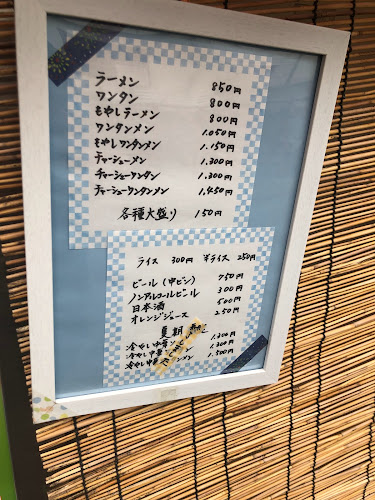 ラーメン 850円
ワンタン 800円
もやしラーメン 800円
ワンタンメン 1.050円
もやしワンタンメン 1.150円
チャーシューメン 1.300円
チャーシューワンタン 1.300円
チャーシューワンタンメン 1.450円
各種大盛り 150円
ライス 300円 半ライス 250円
ビール(中ビン) 750円
ノンアルコールビール 300円
日本酒 500円
オレンジジュース 250円
夏期
冷やし中華 1.300円
冷やし中華 1.300円
冷やし中華 1.500円